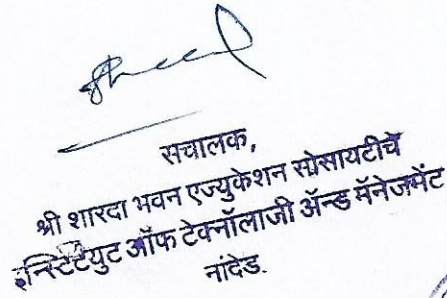 सचालक,
श्री शारदा भवन एज्युकेशन सोसायटीचे
इन्स्टिटयुट ऑफ टेक्नॉलाजी ॲन्ड मॅनेजमेंट
नांदेड.